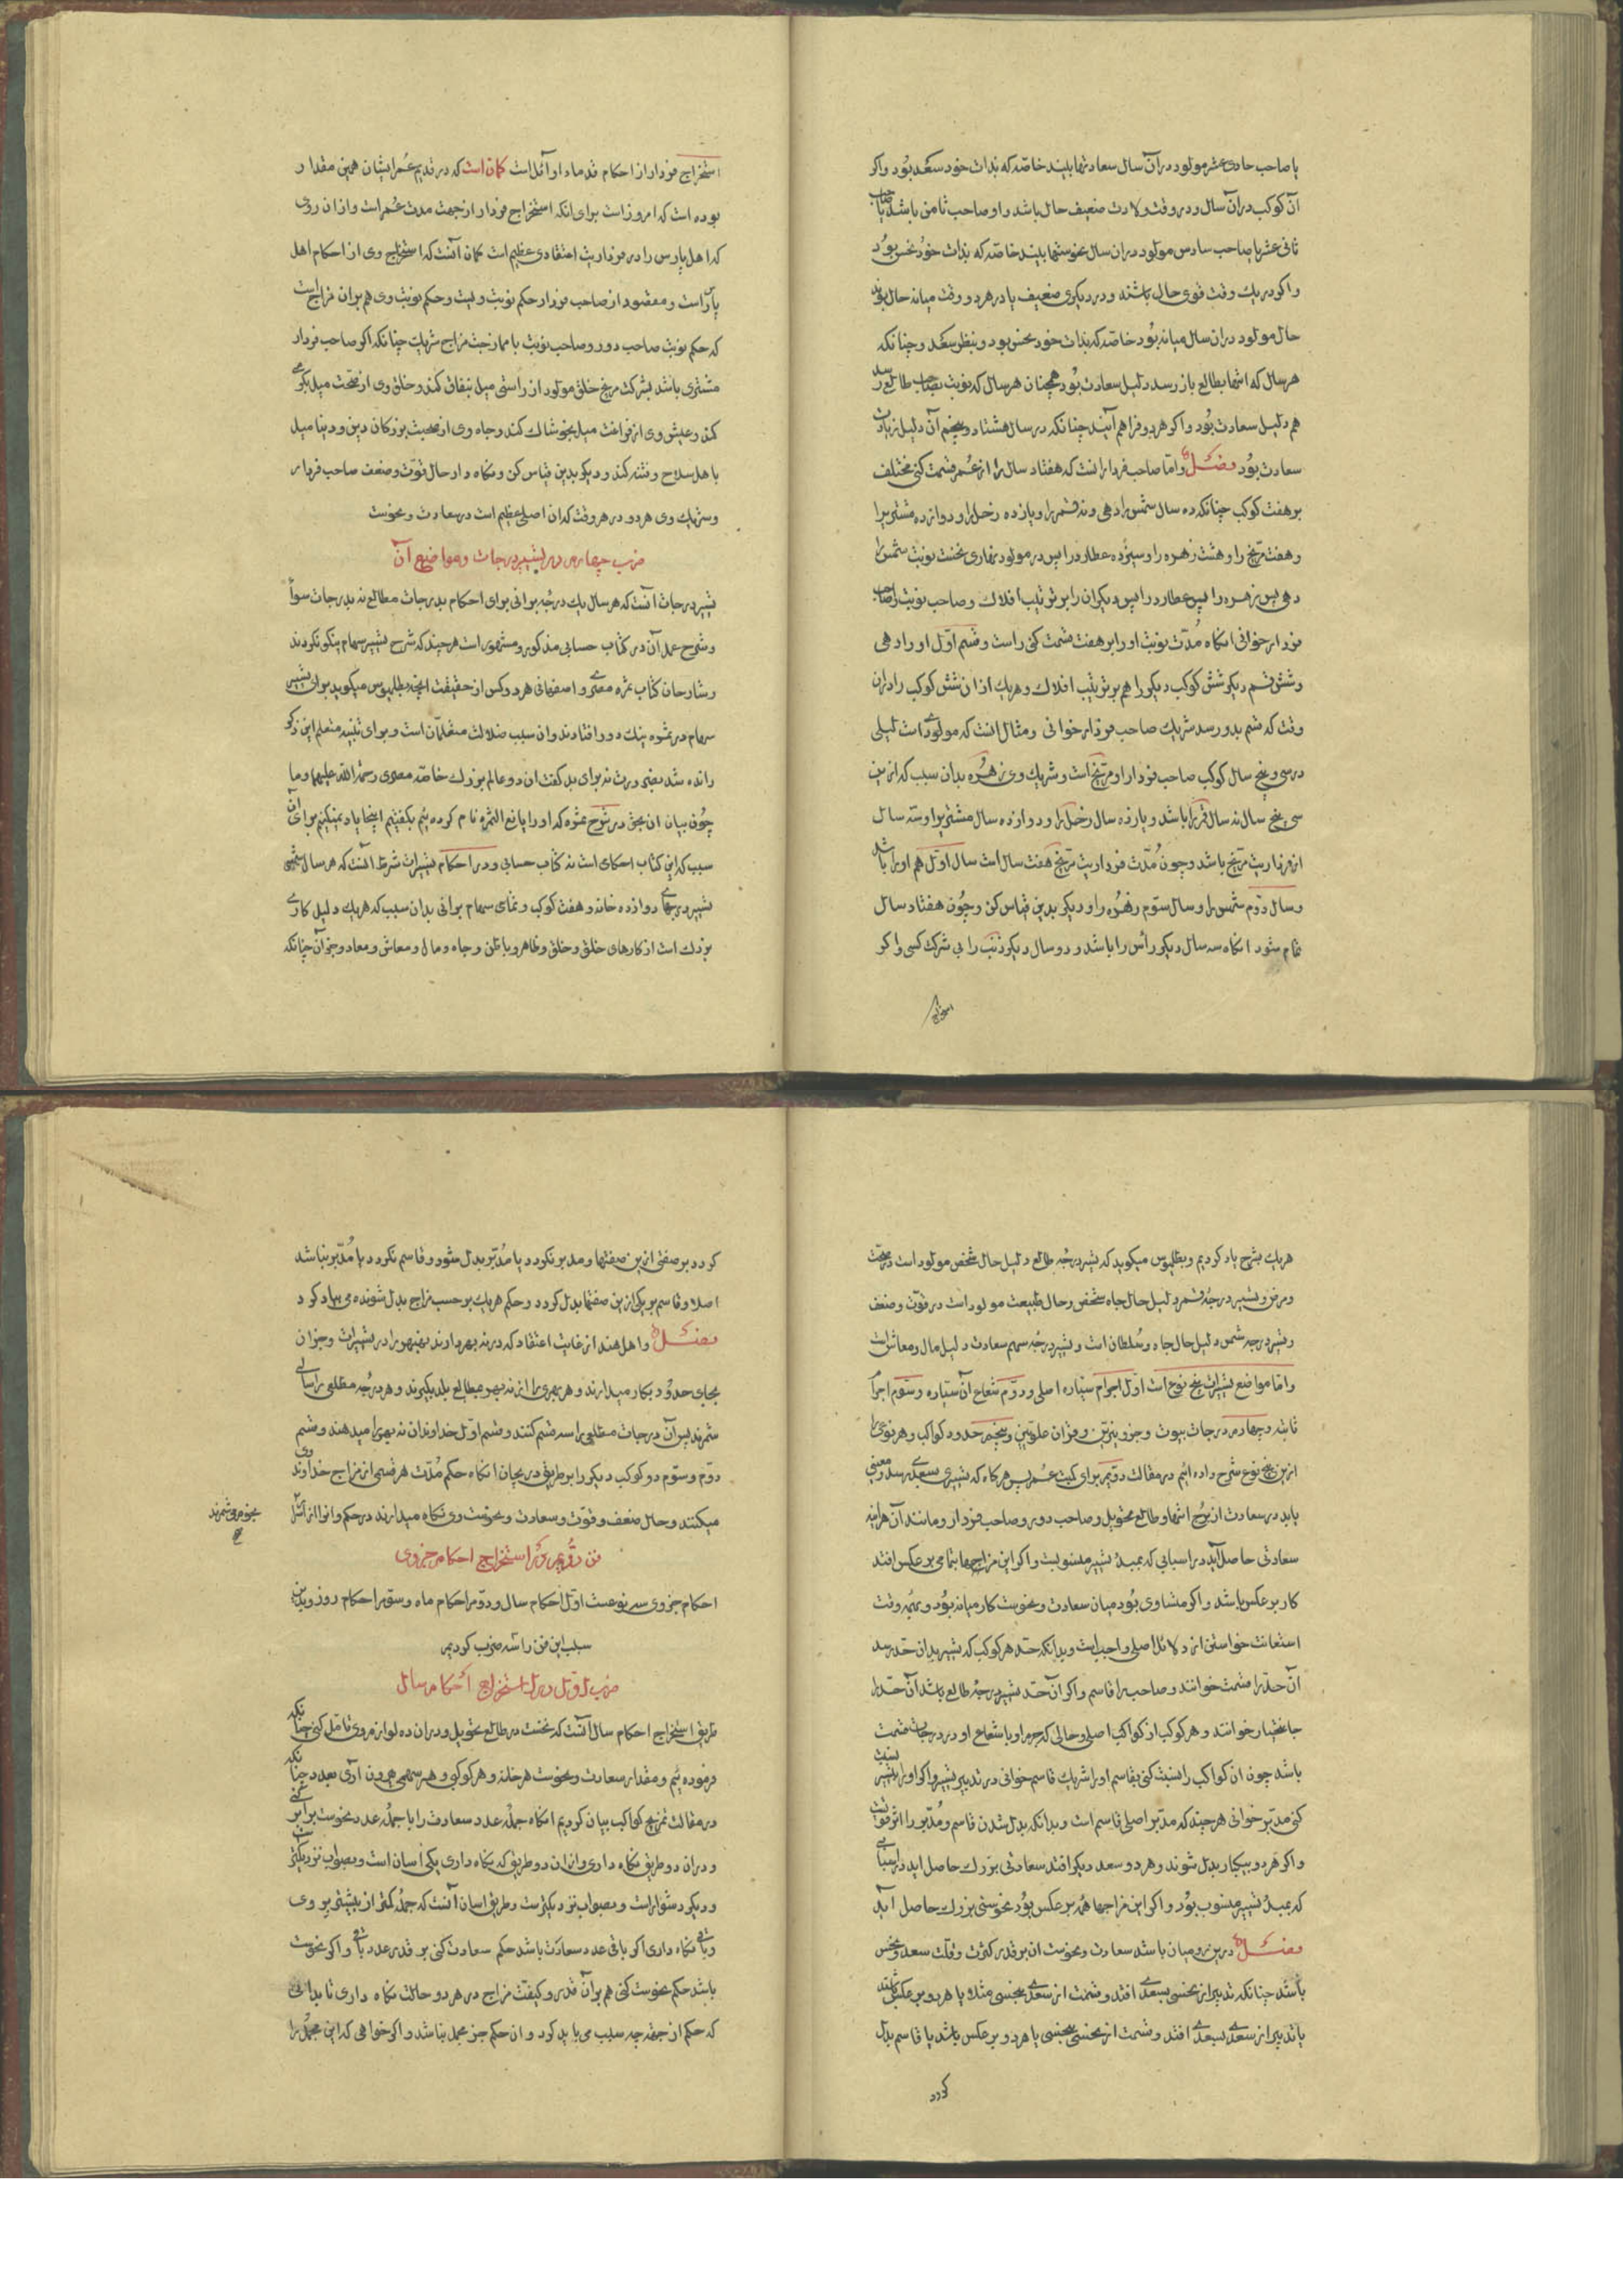 یا صاحب حادی عشر مولود در آن سال سعادتها بیند خاصّه که بذات خود سعد بُود واکر
آن کوکب در آن سال و در وقت ولادت ضعیف حال باشد و او صاحب ثامن باشد یا صاحب
ثانی عشر یا صاحب سادس مولود در آن سال نحوستها بیند خاصّه که بذات خود نحس بُود
و اکر در یك وقت قوی حال باشند و در دیکری ضعیف یا در هر دو وقت میانه حال بوند
حال مولود در آن سال میانه بُود خاصّه که بذات خود نحس بود و بنظر سعد و چنانکه
هر سال که انتها بطالع باز رسد دلیل سعادت بُود همچنان هر سال که نوبت بصاحب طالع رسد
هم دلیل سعادت بُود و اکر هر دو فراهم آیند چنانکه در سال هشتاد و پنجم آن دلیل زیادت
سعادت بُود فصل و امّا صاحب فردار انست که هفتاد سال را از عُمر قسمت کنی مختلف
بر هفت کوکب چنانکه ده سال شمس را دهی و نه قمر را و یازده زحل را و دوازده مشتری را
و هفت مرّیخ را و هشت زهره را و سیزده عطارد را پس در مولود نهاری نخست نوبت شمس را
دهی پس زهره را پس عطارد را پس دیکران را بر ترتیب افلاك و صاحب نوبت را صاحب
فردار خوانی انکاه مُدّت نوبت او را بر هفت قسمت کنی راست و قسم اوّل او را دهی
و شش قسم دیکر شش کوکب دیکر را هم بر ترتیب افلاك و هر یك از ان شش کوکب را در ان
وقت که قسم بدو رسد شریك صاحب فردار خوانی و مثال انست که مولودی است لیلی
در سی و پنج سال کوکب صاحب فردار او مرّیخ است و شریك وی زهُره بدان سبب که از ین
سی پنج سال نه سال قمر را باشد و یازده سال زحل را و دوازده سال مشتری را و سه سال
از فرداریت مرّیخ باشد و چون مُدّت فرداریت مرّیخ هفت سال است سال اوّل هم او را باشد
و سال دوّم شمس را و سال سوّم زهُره را و دیکر بدین قیاس کن و چُون هفتاد سال
تمام شود انکاه سه سال دیکر رأس را باشد و دو سال دیکر ذنب را بی شرکت کسی و اکر
استخراج
استخراج فردار از احکام قدماء اوائل است کمان است که در قدیم عُمر ایشان همین مقدار
بوده است که امروز است برای انکه استخراج فردار از جهت مدّت عُمر است و از ان روی
که اهل پارس را در فرداریت اعتقادی عظیم است کمان آنست که استخراج وی از احکام اهل
پارس است و مقصود از صاحب فردار حکم نوبت ولیت و حکم نوبت وی هم بر ان مزاج است
که حکم نوبت صاحب دور و صاحب نوبت با ممازجت مزاج شریك چنانکه اکر صاحب فردار
مشتری باشد بشرکت مرّیخ خلق مولود از راستی میل بنفاق کند و خلق وی از صحّت میل بکرمی
کند و عیش وی از فراغت میل بخوشاك کند و جاه وی از صحبت بزرکان دین و دینا میل
با هل سلاح و فتنه کند و دیکر بدین قیاس کن و نکاه دار حال قوّت و ضعف صاحب فردار
و شریك وی هر دو در هر وقت که ان اصلی عظیم است در سعادت و نحوست
ضرب چهارم در تسییر درجات و مواضع آن
تسییر درجات آنست که هر سال یك درجه برانی برای احکام بدرجات مطالع نه بدرجات سوآ
و شرح عمل آن در کتاب حسابی مذکور و مشهور است هر چند که شرح تسییر سهام نیکو نکردند
و شارحان کتاب ثمره معدی و اصفهانی هر دو کس از حقیقت انچه بطلیموس میکوید برای تسییر
سهام در ثمره نیك دور افتادند و ان سبب ضلالت متعلّمان است و برای تنبیه متعلم این ذکر
رانده شد یعنی درست نه برای بد کفت ان دو عالم بزرك خاصّه معدی رحمة الله علیهما و ما
چُون بیان ان بحق در شرح ثمره که او را یانع الثمره نام کرده ئیم بکفتیم اینجا یاد نمیکنیم برای آن
سبب که این کتاب احکامی است نه کتاب حسابی و در احکام تسییرات شرط آنست که هر سال شمسی
تسییر درجهای دوازده خانه و هفت کوکب و تمامی سهام برانی بدان سبب که هر یك دلیل کاری
بزرك است از کارهای خلق و خلق و ظاهر و باطن و جاه و مال و معاش و معاد و جز آن چنانکه
هر یك بشرح یاد کردیم و بطلیموس میکوید که تسییر درجهٔ طالع دلیل حال شخص مولود است در صحّت
و مرض و تسییر درجهٔ قمر دلیل حال جاه شخص و حال طبیعت مولود است در قوّت و ضعف
و تسییر درجه شمس دلیل حال جاه و سُلطان است و تسییر درجهٔ سهم سعادت دلیل مال و معاش است
و امّا مواضع تسییرات پنج نوع است اوّل اجرام ستاره اصلی و دوّم شعاع آن ستاره و سّوم اجرام
ثابته و چهارم درجات بیوت و جزو نیّرین و قران علوّیین و پنجم حدود کواکب و هر نوعی را
ازین پنج نوع شرح داده ائیم در مقالت دوّیم برای کمیت عُمر پس هر کاه که تسییری بسعدی رسد و معینی
یابد در سعادت از بُرج انتها و طالع تحویل و صاحب دور و صاحب فردار و مانند آن هر اینه
سعادتی حاصل آید در اسبابی که بمبدٔ تسییر منسوبست و اکر این مزاجها بتمامی بر عکس افتد
کار بر عکس باشد و اکر متساوی بُود میان سعادت و نحوست کار میانه بُود و بهمه وقت
استعانت خواستن از دلائل اصلی واجب است و بدانکه حد هر کوکب که تسییر بدان حد رسد
آن حد را قسمت خوانند و صاحب را قاسم و اکر آن حد تسییر درجهٔ طالع باشد آن حد را
جانبختار خوانند و هر کوکب از کواکب اصلی و حالی که جرم او یا شعاع او در درجات قسمت
باشد چون ان کواکب را نسبت کنی بقاسم او را شریك قاسم خوانی در تدبیر تسییر و اکر او را نسبت بتسییر
کنی مدبّر خوانی هر چند که مدبّر اصلی قاسم است و بدانکه بدل شدن قاسم و مُدبّر را اثر قویست
و اکر هر دو بیکبار بدل شوند و هر دو سعد دیکر افتد سعادتی بزرك حاصل اید در اسبابی
که بمبدٔ تسییر منسوب بُود و اکر این مزاجها همه بر عکس بُود نحوستی بزرك حاصل آید
فصل درین رومیان باشد سعادت و نحوست ان بر قدر کثرت و قلّت سعد و نحس
باشد چنانکه تدبیر از نحسی بسعدی افتد و قسمت از سعدی بنحسی مثلا یا هر دو بر عکس باشند
یا تدبیر از سعدی بسعدی افتد و قسمت از نحسی بنحسی یا هر دو بر عکس باشد یا قاسم بدل
کردد
کردد بر صفتی ازین صفتها و مدبر نکردد یا مُدبّر بدل شود و قاسم نکردد یا مُدبّر نباشد
اصلا و قاسم بر یکی ازین صفتها بدل کردد و حکم هر یك بر حسب مزاج بدل شونده می بباد کرد
فصل و اهل هند از غایت اعتقاد که در نه بهر دارند نهبهر را در تسییرات و جز ان
بجای حدُود بکار میدارند و هر بهری را از نه بهر بمطالع بلد بکیرند و هر درجهٔ مطلعی را سالی
شمرند پس آن درجات مطلعی را سه قسم کنند و قسم اوّل خداوندان نه بهر را میدهند و قسم
دوّم و سّوم دو کوکب دیکر را بر طریق دریجان انکاه حکم مُدّت هر قسمی از مزاج خداوند وی
میکنند و حال ضعف و قوّت و سعادت و نحوست وی نکاه میدارند در حکم و انرا از آثار
بخوم میشمرند صح
فن دوُیم در استخراج احکام جزوی
احکام جزوی سه نوعست اوّل احکام سال و دوّم احکام ماه و سوّم احکام روز و بدین
سبب این فن را سه ضرب کردیم
ضرب اوّل در استخراج احکام سال
طریق استخراج احکام سال آنست که نخست در طالع تحویل و در ان ده لوازم وی تأمل کنی چنانکه
فرموده ئیم و مقدار سعادت و نحوست هر خانه و هر کوکبی و هر سهمی بیرون آری بعدد چنانکه
در مقالت تمزیج کواکب بیان کردیم انکاه جملهٔ عدد سعادت را با جملهٔ عدد نحوست برابر کنی
و در ان دو طریق نکاه داری و از ان دو طریق که نکاه داری یکی اسان است و بصواب نزدیکتر
و دیکر دشوار است و بصواب نزدیکترست و طریق اسان آنست که جملهٔ کمتر از بیشتر بروی
و باقی نکاه داری اکر باقی عدد سعادت باشد حکم سعادت کنی بر قدر عدد باقی و اکر نحوست
باشد حکم نحوست کنی هم بر آن قدر و کیفیت مزاج در هر دو حالت نکاه داری تا بدانی
که حکم از جهة چه سبب می باید کرد و ان حکم جز مجمل نباشد و اکر خواهی که این مجمل را